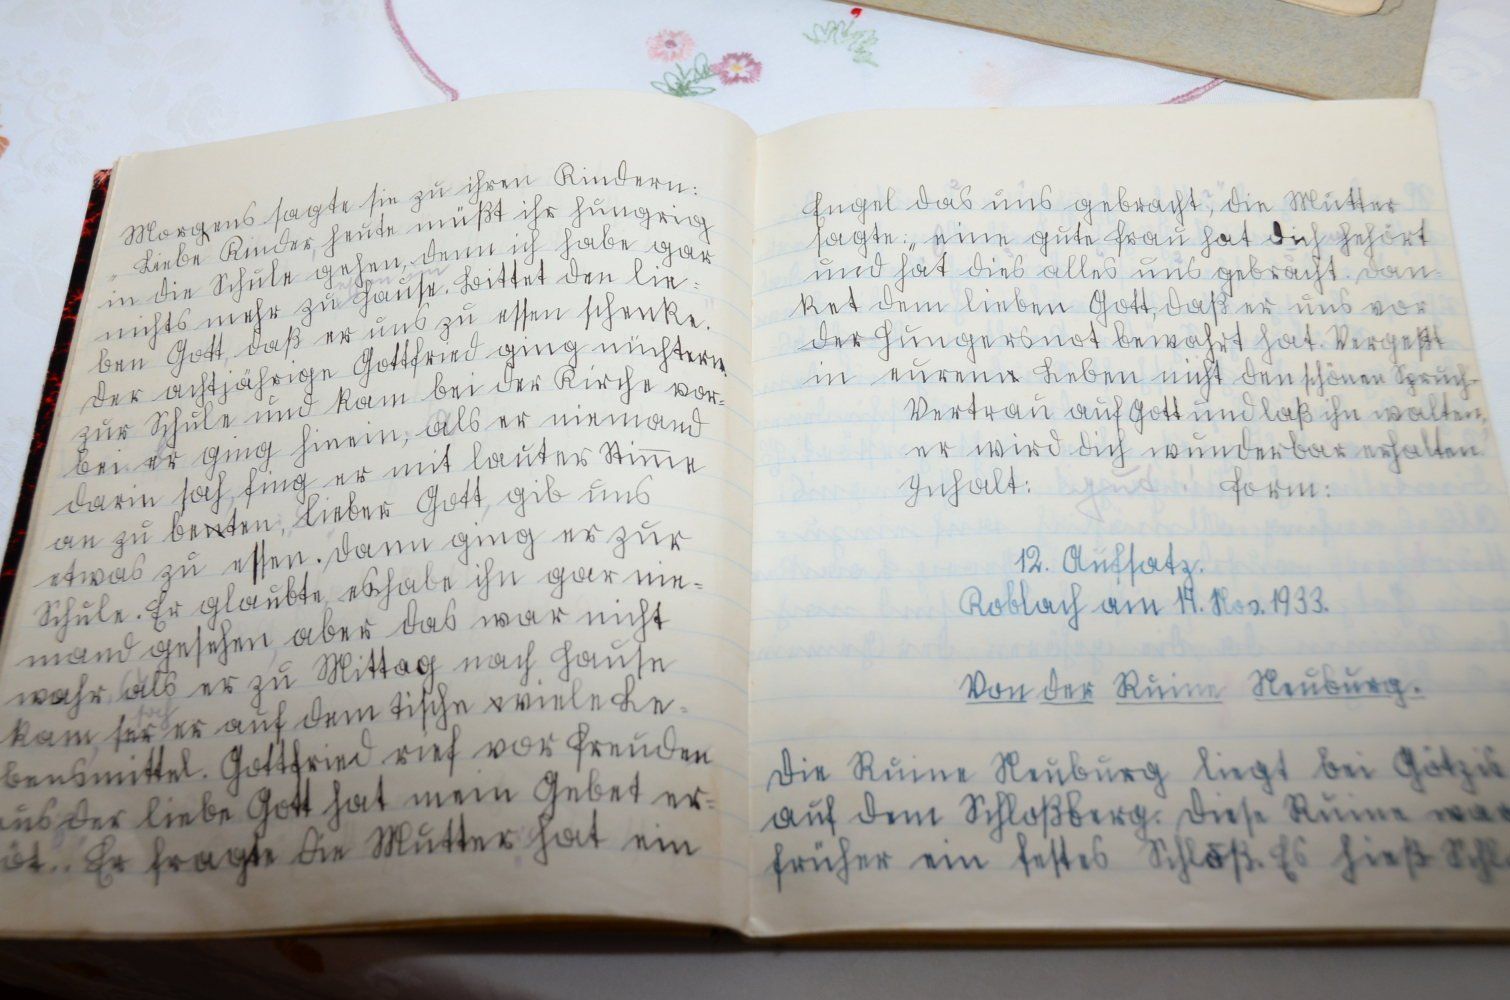 Morgens sagte sie zu ihren Kindern:
„Liebe Kinder, heute müßt ihr hungrig
in die Schule gehen, denn ich habe gar
nichts mehr zu Hause. Bittet den lie-
ben Gott, daß er uns zu essen schenke."
Der achtjährige Gottfried ging nüchtern
zur Schule und kam bei der Kirche vor-
bei er ging hinein, Als er niemand
darin sah, fing er mit lauter Stimme
an zu beten, Lieber Gott, gib uns
etwas zu essen. Dann ging er zur
Schule. Er glaubte, es habe ihn gar nie-
mand gesehen, aber das war nicht
wahr, als er zu Mittag nach Hause
kam, sah er auf dem Tische viele Le-
bensmittel. Gottfried rief vor Freuden
aus der liebe Gott hat mein Gebet er-
ört.. Er fragte die Mutter hat ein
Engel das uns gebracht, die Mutter
sagte: „eine gute Frau hat dich gehört
und hat dies alles uns gebracht. Dan-
ket dem lieben Gott, daß er uns vor
der Hungersnot bewahrt hat. Vergeßt
in eurem Leben nicht den schönen Spruch-
Vertrau auf Gott und laß ihn walten,
er wird dich wunderbar erhalten.
Inhalt: gut Form:
12. Aufsatz.
Koblach am 17. Nov. 1933.
Von der Ruine Neuburg.
Die Ruine Neuburg liegt bei Götzis
auf dem Schloßberg. Diese Ruine war
früher ein festes Schloß. Es hieß Schlo